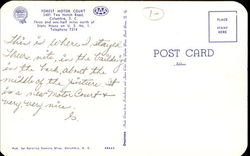 FOREST MOTOR COURT
5401 Two Notch Road
Columbia, S. C.
Three and one-half miles north of
State House on U. S. No. 1
Telephone 7214
AAA
1-
PLACE
STAMP
HERE
POST CARD
Address
This is where I stayed
Thur. nite, in the building
in the back, about the
middle of the picture. It
is a new Motor Court &
very very nice.